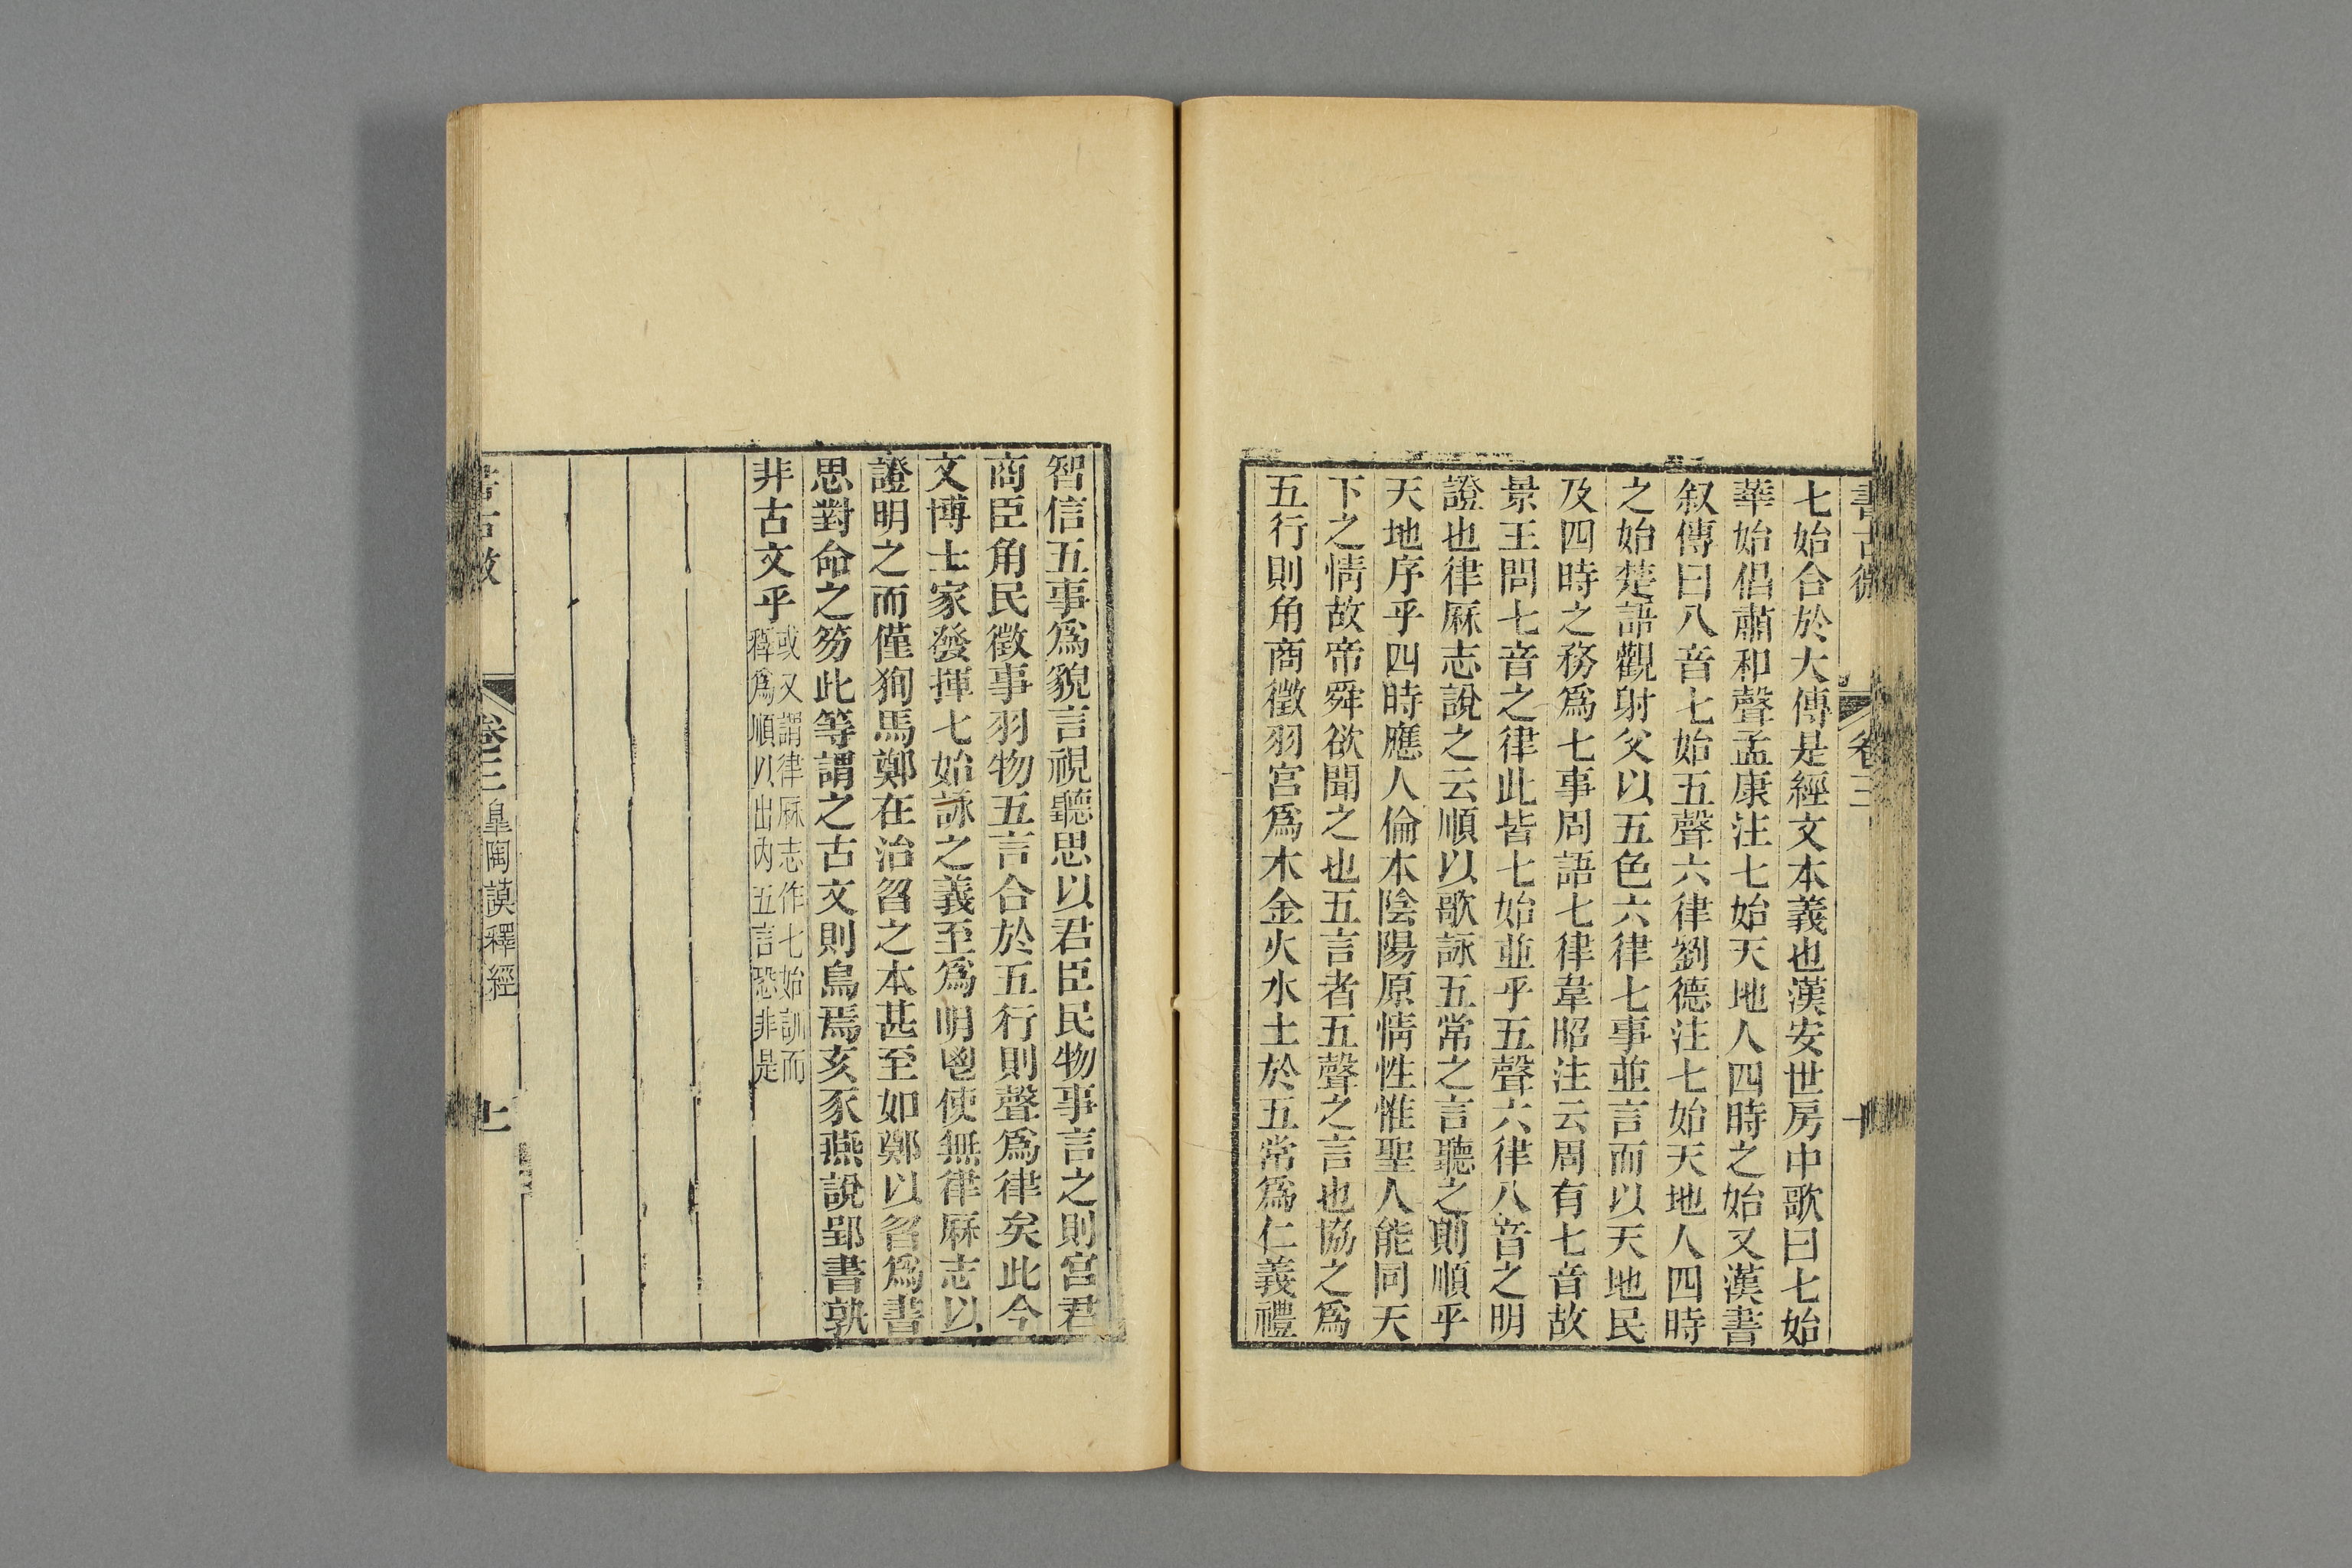 書古微
卷三
十
七始合於大傳是經文本義也漢安世房中歌曰七始
華始倡肅和聲孟康注七始天地人四時之始又漢書
叙傳曰八音七始五聲六律劉德注七始天地人四時
之始楚語觀射父以五色六律七事並言而以天地民
及四時之務爲七事周語七律韋昭注云周有七音故
景王問七音之律此皆七始並乎五聲六律八音之明
證也律厤志說之云順以歌詠五常之言聽之則順乎
天地序乎四時應人倫本陰陽原情性惟聖人能同天
下之情故帝舜欲聞之也五言者五聲之言也協之爲
五行則角商徵羽宮爲木金火水土於五常爲仁義禮
智信五事爲貌言視聽思以君臣民物事言之則宮君
商臣角民徵事羽物五言合於五行則聲爲律矣此今
文博士家發揮七始詠之義至爲明鬯使無律厤志以
證明之而僅狥馬鄭在治曶之本甚至如鄭以曶爲書
思對命之笏此等謂之古文則鳥焉亥豕燕說郢書孰
非古文乎
或又謂律厤志作七始訓而
釋爲順以出内五言恐非是
書古微
卷三
皐陶謨釋經